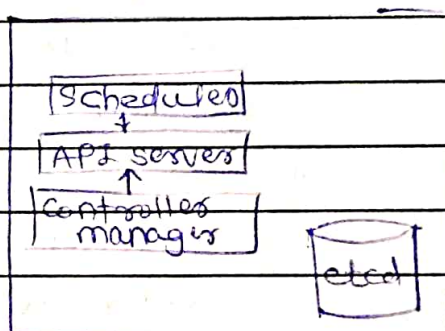 Scheduler
API Server
Controller
manager
etcd